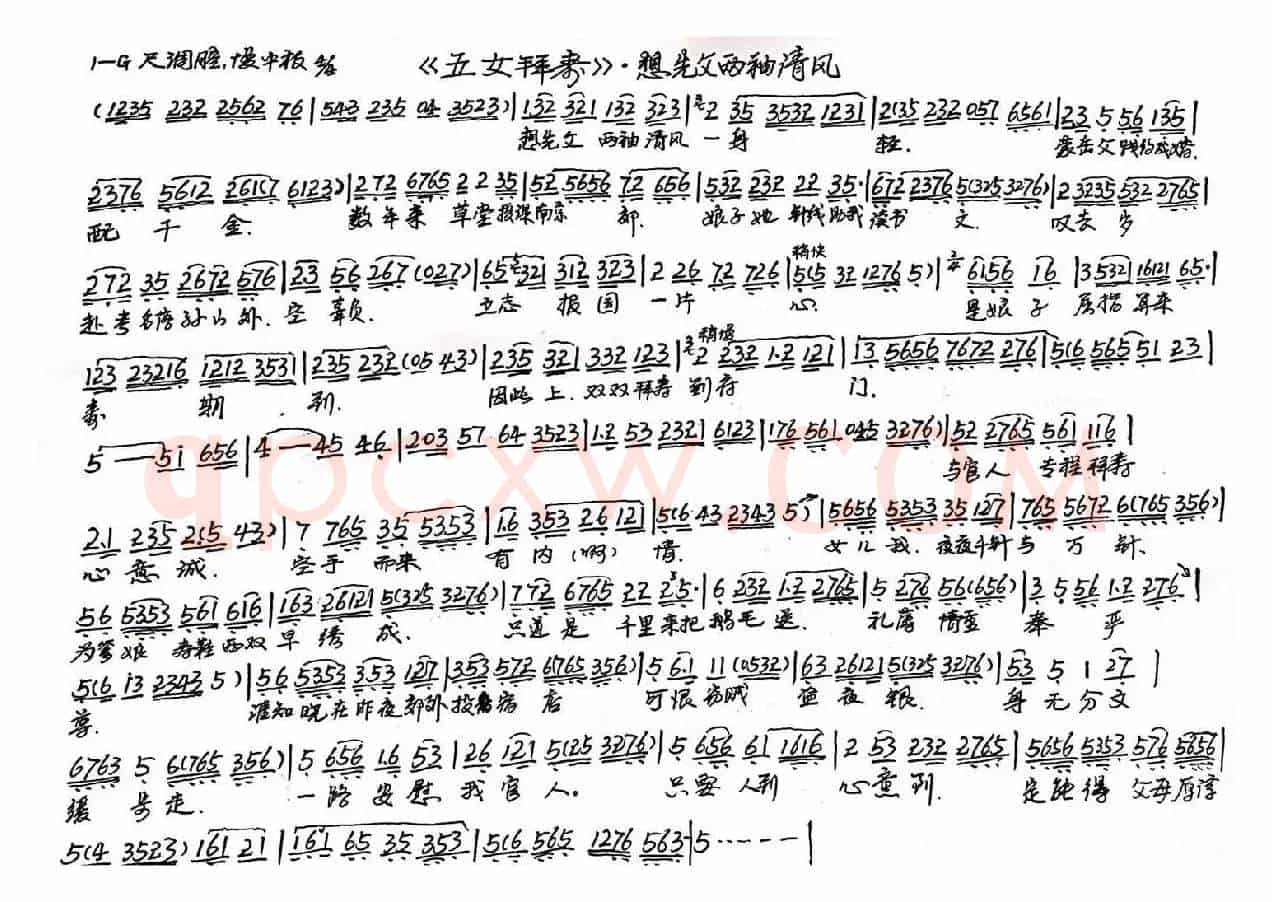 1=G 尺调腔.慢中板 4/4 《五女拜寿》·想先父两袖清风
(1235 232 2562 76|543 235 04 3523)|132 321 132 323|2 35 3532 1231|2(35 232 057 6561|23 5 56 135|
想先父 两袖 清风 一身 轻. 蒙岳父 践约成婚.
2376 5612 261(7 6123)|272 6765 2 2 35|52 5656 72 656|532 232 22 35·|672 2376 5(325 3276)|2 3235 532 2765|
配千金. 数年来 草堂 攻读 南京 郊. 娘子她 针线助我 读书 文. 叹去岁
272 35 2672 576|23 56 267 (027)|65 321 312 323|2 26 72 726|稍快 5(5 32 1276 5)|6156 16|3532 16121 65·|
赴考 名落孙山外. 空辜负. 立志 报国 一片 心. 是娘子 屈指 算来
123 23216 1212 3531|235 232 (05 43)|235 321 332 123|稍慢 2 232 1·2 121|13 5656 7672 276|5(6 565 51 23|
寿 期 到. 因此上. 双双拜寿 到府 门.
5——51 656|4——45 46|203 57 64 3523|1·2 53 2321 6123|176 561 045 3276)|52 2765 561 116|
qpcxw.com
与官人 专程 拜寿
2·1 235 2(5 43)|7 765 35 5353|1·6 353 26 121|5(6 43 2343 5)|5656 5353 35 127|765 5672 6(765 356)|
心意诚. 空手 而来 有内(啊)情. 女儿我. 夜夜千针与 万 针.
56 5353 561 616|163 26121 5(325 3276)|772 6765 22 25·|6 232 1·2 2765|5 276 56(656)|3 5 56 1·2 276|
为爹娘 寿鞋两双 早绣 成. 只道是 千里 来把 鹅毛 送. 礼薄 情重 奉 严
5(6 13 2343 5)|56 5353 353 127|353 572 6765 356)|5 6·1 11 (0532)|63 26121 5(325 3276)|53 5 1 27|
尊. 谁知晓 在昨夜 郊外 投宿 店 可恨 窃贼 盗夜银. 身无分文
6763 5 6(765 356)|5 656 1·6 53|26 121 5(25 3276)|5 656 61 1616|2 53 232 2765|5656 5353 576 5656|
缓步走. 一路安慰 我官人。 只要 人到 心意到. 定能得 父母 厚谅
5(4 3523) 161 21|161 65 35 353|5(6 565 1276 563·|5······—|